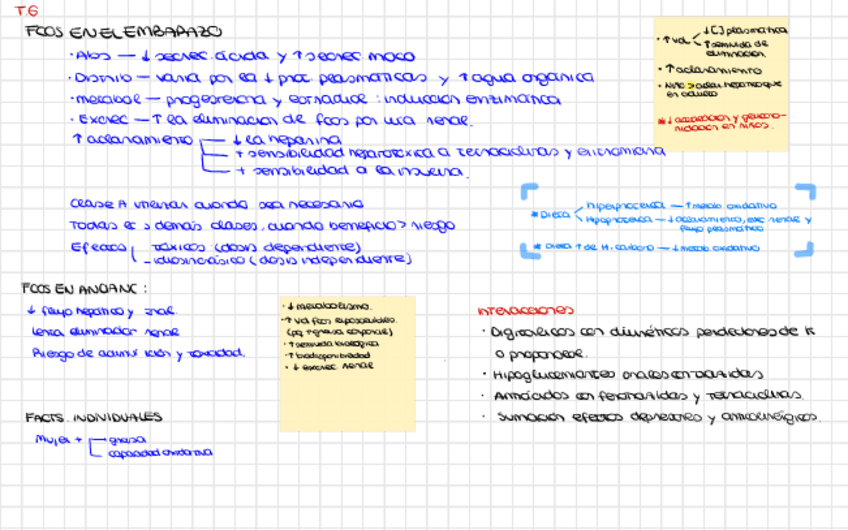 T.6
FCOS EN EL EMBARAZO
· Abs — ↓ secrec. ácida y ↑ secrec moco
· Distrib — varia por la ↓ prot. plasmáticas y ↑ agua orgánica
· metabol — progesterona y estradiol : inducción enzimática
· Excrec — ↑ la eliminación de fcos por vía renal.
↑ aclaramiento — ↓ la heparina
+ sensibilidad hepatotóxica a tetraciclinas y eritromicina
+ sensibilidad a la insulina.
Clase A utilizar cuando sea necesario
Todas las demás clases, cuando beneficio > riesgo
Efectos — tóxicos (dosis dependiente)
— idiosincrásico (dosis independiente)
· ↑ Vd
↓ [C] plasmática
↑ semivida de eliminación.
· ↑ aclaramiento
· niño > aclar. hepático que en adulto
* ↓ acetilación y glucuronidación en niños.
* Dieta
hiperproteica — ↑ metab oxidativo
hipoproteica — ↓ aclaramiento, exc renal y
flujo plasmático
* Dieta ↑ de H. carbono — ↓ metab. oxidativo
FCOS EN ANCIANC :
↓ flujo hepático y renal.
lenta eliminación renal
Riesgo de acumulación y toxicidad.
· ↓ metabolismo.
· ↑ Vd fcos liposolubles.
(pq ↑ grasa corporal)
· ↑ semivida biológica
· ↑ biodisponibilidad
· ↓ excrec renal
Interacciones
· Digitálicos con diuréticos perdedores de K
o propranolol.
· Hipoglucemiantes orales con batidas
· Antiácidos con fenotiazidas y tetraciclinas.
· Sumación efectos depresores y anticolinérgicos.
FACTS. INDIVIDUALES
Mujer + — grasa
capacidad oxidativa